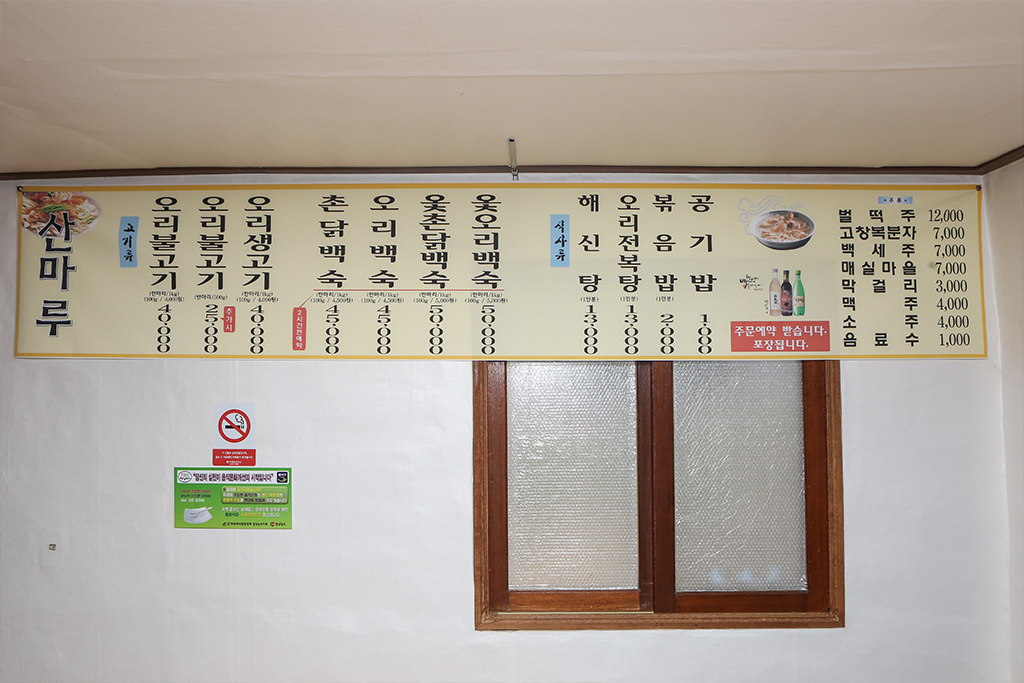 산마루
고기류
오리불고기
(한마리/1kg)
(100g / 4,000원)
40,000
오리불고기
(반마리/500g)
25,000
추가시
오리생고기
(한마리/1kg)
(100g / 4,000원)
40,000
2시간전예약
촌닭백숙
(한마리/1kg)
(100g / 4,500원)
45,000
오리백숙
(한마리/1kg)
(100g / 4,500원)
45,000
옻촌닭백숙
(한마리/1kg)
(100g / 5,000원)
50,000
옻오리백숙
(한마리/1kg)
(100g / 5,000원)
50,000
식사류
해신탕
(1인분)
13,000
오리전복탕
(1인분)
13,000
볶음밥
(1인분)
2,000
공기밥
1,000
주문예약 받습니다.
포장됩니다.
주류
벌떡주 12,000
고창복분자 7,000
백세주 7,000
매실마을 7,000
막걸리 3,000
맥주 4,000
소주 4,000
음료수 1,000
"당신의 실천이 음식문화개선의 시작입니다"